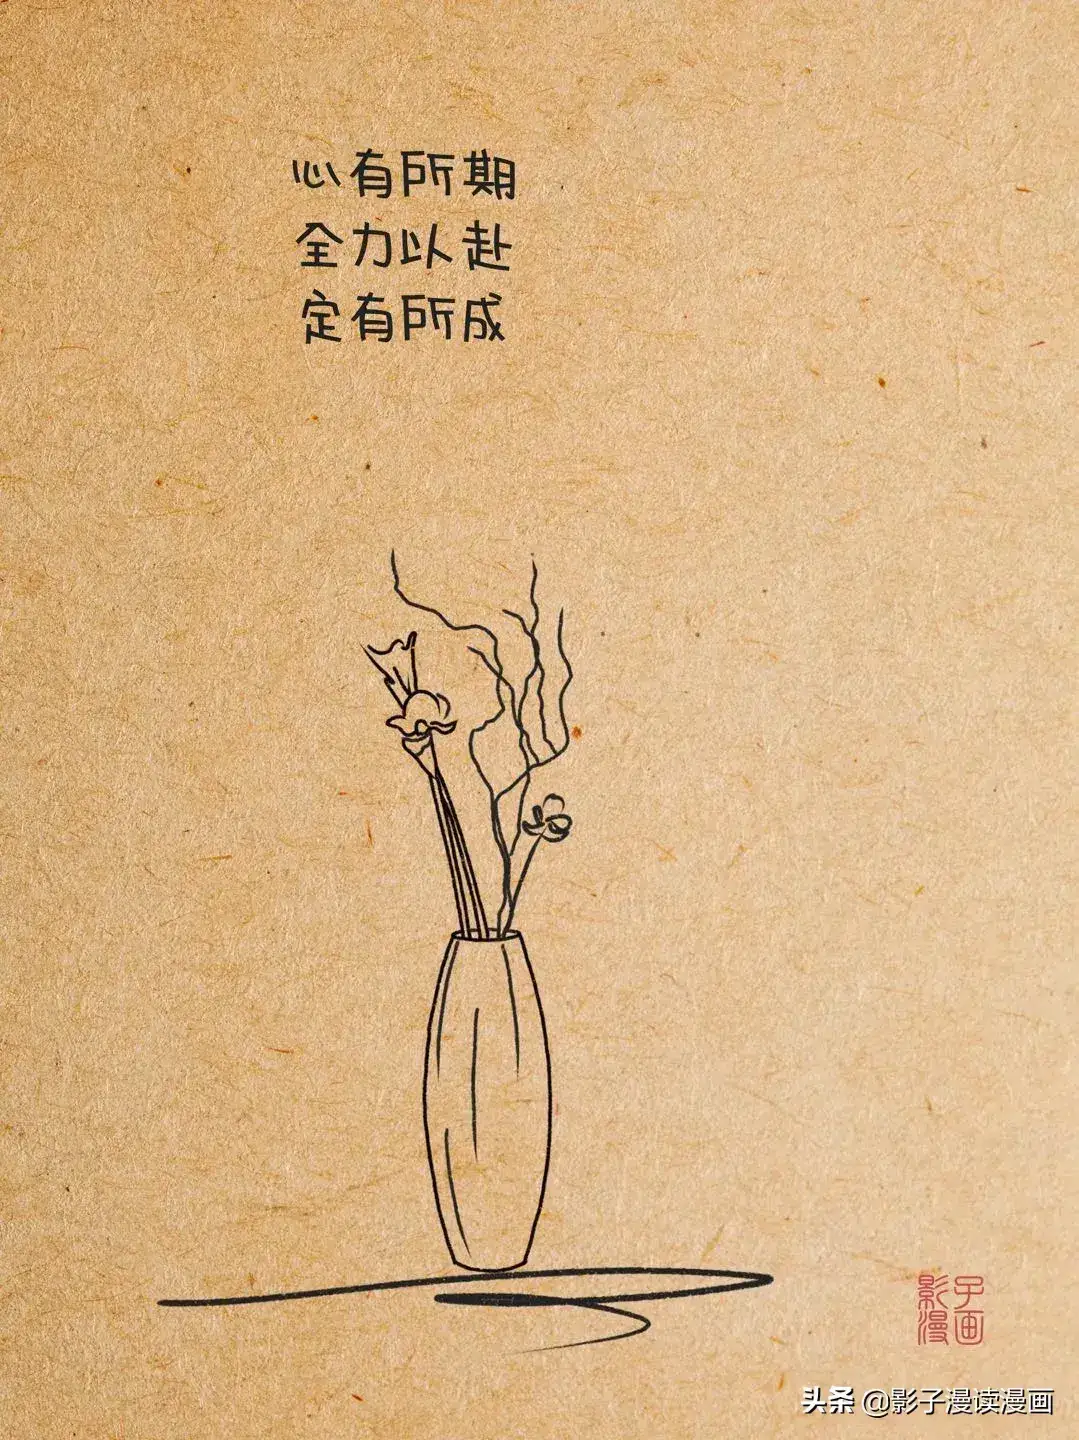 心有所期
全力以赴
定有所成
影子
漫画
头条 @影子漫读漫画